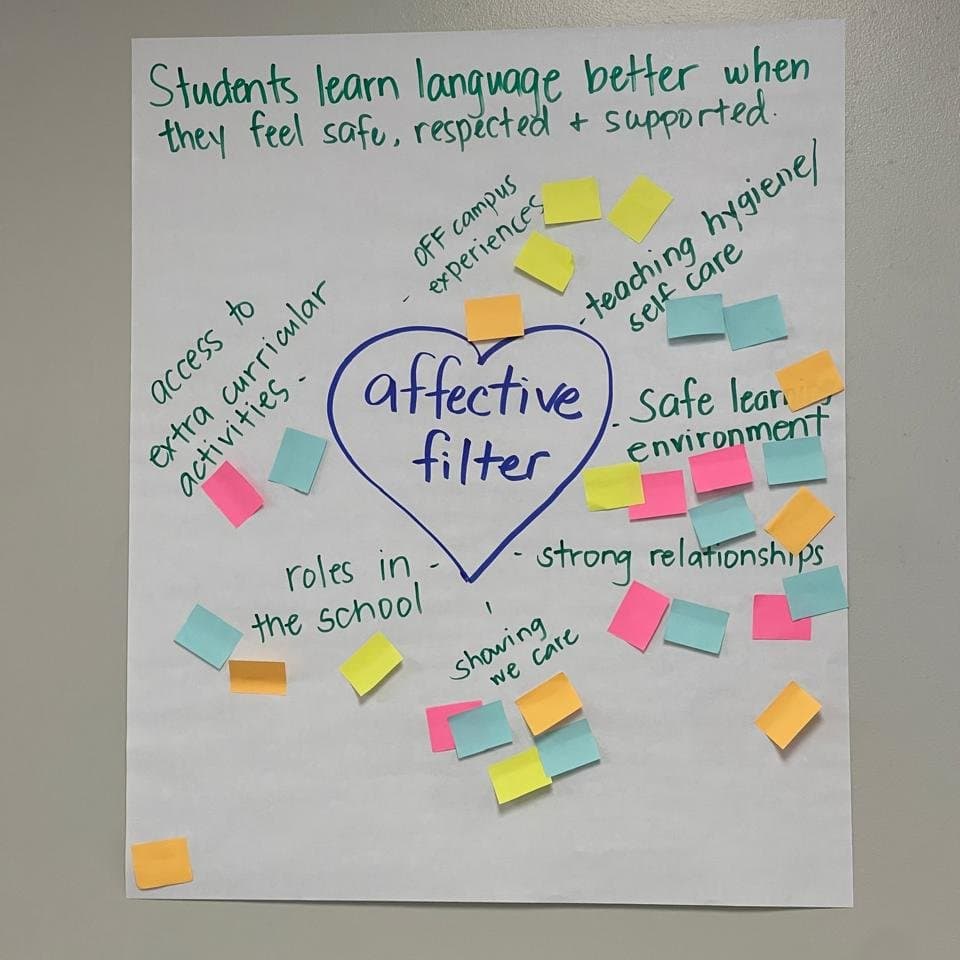 Students learn language better when
they feel safe, respected + supported.
OFF campus
experiences
-
- teaching hygiene/
self care
access to
extra curricular
activities -
affective
filter
- Safe learning
environment
roles in -
the school
- strong relationships
showing
we care